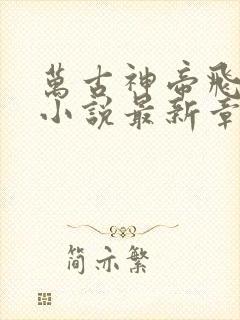 萬古神帝飛
小說最新章
简亦繁